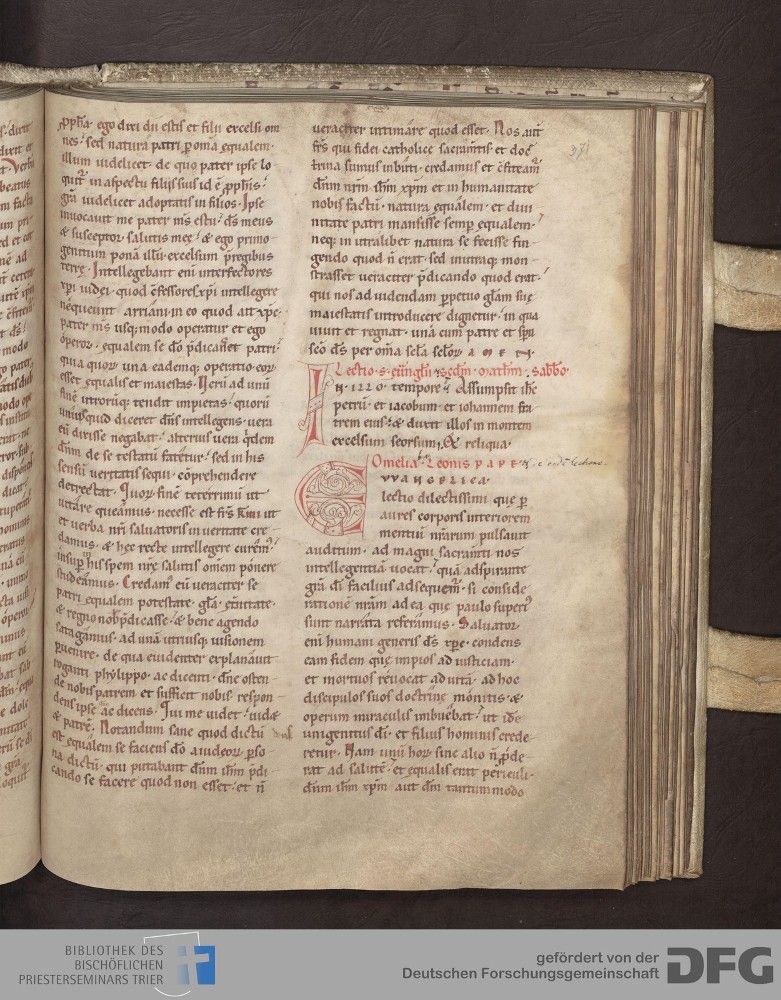 ꝓph̄a · ego dixi dii estis et filii excelsi om
nes · sed natura patri ꝑ om̄a equalem ·
illum uidelicet · de quo pater ipse lo
gr̄a uidelicet adoptatis in filios · Ipse
inuocauit me pater m̄s es tu · d̄s meus
& susceptor salutis meę · & ego primo
genitum ponā illū excelsum p̄ regibus
terrę · Intellegebant enī interfectores
xp̄i iudei · quod c̄fessores xp̄i intellegere
nequeunt arriani · in eo quod ait xp̄c ·
pater m̄s usq; modo operatur et ego
operor · equalem se dō p̄dicasset patri ·
quia quor una eademq; operatio eor
esset equalis et maiestas · Uerū ad unū
finē utrorūq; tendit impietas · quorū
unusquisq; diceret dn̄s intellegens · uera
eū dixisse negabat · alterius uera q̄dem
dn̄m de se testatū fatetur · sed in his
sensū ueritatis sequi · cōprehendere
detrectat · Quor finē teterrimū ut
uitare queamus · necesse est fr̄s kmi ut
et uerba nr̄i saluatoris in ueritate cre
damus · & hęc recte intellegere curem
insuꝑ in his spem nr̄ę salutis om̄em ponere
studeamus · Credam eū ueraciter se
patri equalem potestate · gl̄a · et̄nitate ·
& regno nob p̄dicasse · & bene agendo
satagamus · ad unā utriusq; uisionem
ꝑuenire · de qua euidenter explanauit
roganti phylippo · ac dicenti · dn̄e osten
de nobis patrem et sufficit nobis · respon
dens ipse ac dicens · Qui me uidet · uidet
& patrē · Notandum sane quod dictū
est equalem se faciens dō a iudeor ꝑso
na dictū · qui putabant dn̄m ih̄m p̄di
cando se facere quod non esset · et n̄
ueraciter intimare quod esset · Nos aut̄
fr̄s qui fidei catholice sacram̄tis et doc
trina sumus inbuti · credamus et c̄fiteam̄
dn̄m nr̄m ih̄m xp̄m et in humanitate
nobis factū · natura equalem · et diui
nitate patri mansisse semꝑ equalem ·
neq; in utralibet natura se fecisse fin
gendo quod n̄ erat · sed in utraq; mon
strasset ueraciter p̄dicando quod erat ·
qui nos ad uidendam ꝑpetuo gl̄am suę
maiestatis introducere dignetur · in qua
uiuit et regnat · una cum patre et sp̄u
sc̄o d̄s per om̄a scl̄a scl̄or · A M E N ·
Lectio · s · eūngl̄ii · secdm · mathm̄ · sabb̄o ·
IN · ILLO · tempore · Assumpsit ih̄c
petrū · et iacobum · et iohannem fra
trem eius · & duxit illos in montem
excelsum seorsum · & reliqua ·
Omelia · Leonis PAPE
EUUANGELICA
lectio dilectissimi que ꝑ
aures corporis interiorem
mentiū nr̄arum pulsauit
auditum · ad magni sacram̄ti nos
intellegentiā uocat · quā adspirante
gr̄a di facilius adsequem · si conside
rationē nr̄am ad ea que paulo superi
sunt narrata referamus · Saluator
enī humani generis d̄s xp̄c · condens
eam fidem quę impios ad iusticiam ·
et mortuos reuocat ad uitā · ad hoc
discipulos suos doctrinę monitis · &
operum miraculis imbuebat · ut idē
unigenitus di · et filius hominis crede
retur · Nam unū hor sine alio n̄ ꝓde
rat ad salutē · et equalis erat periculi ·
dn̄m ih̄m xp̄m aut dm̄ tantummodo
371
BIBLIOTHEK DES
BISCHÖFLICHEN
PRIESTERSEMINARS TRIER
gefördert von der
Deutschen Forschungsgemeinschaft
DFG